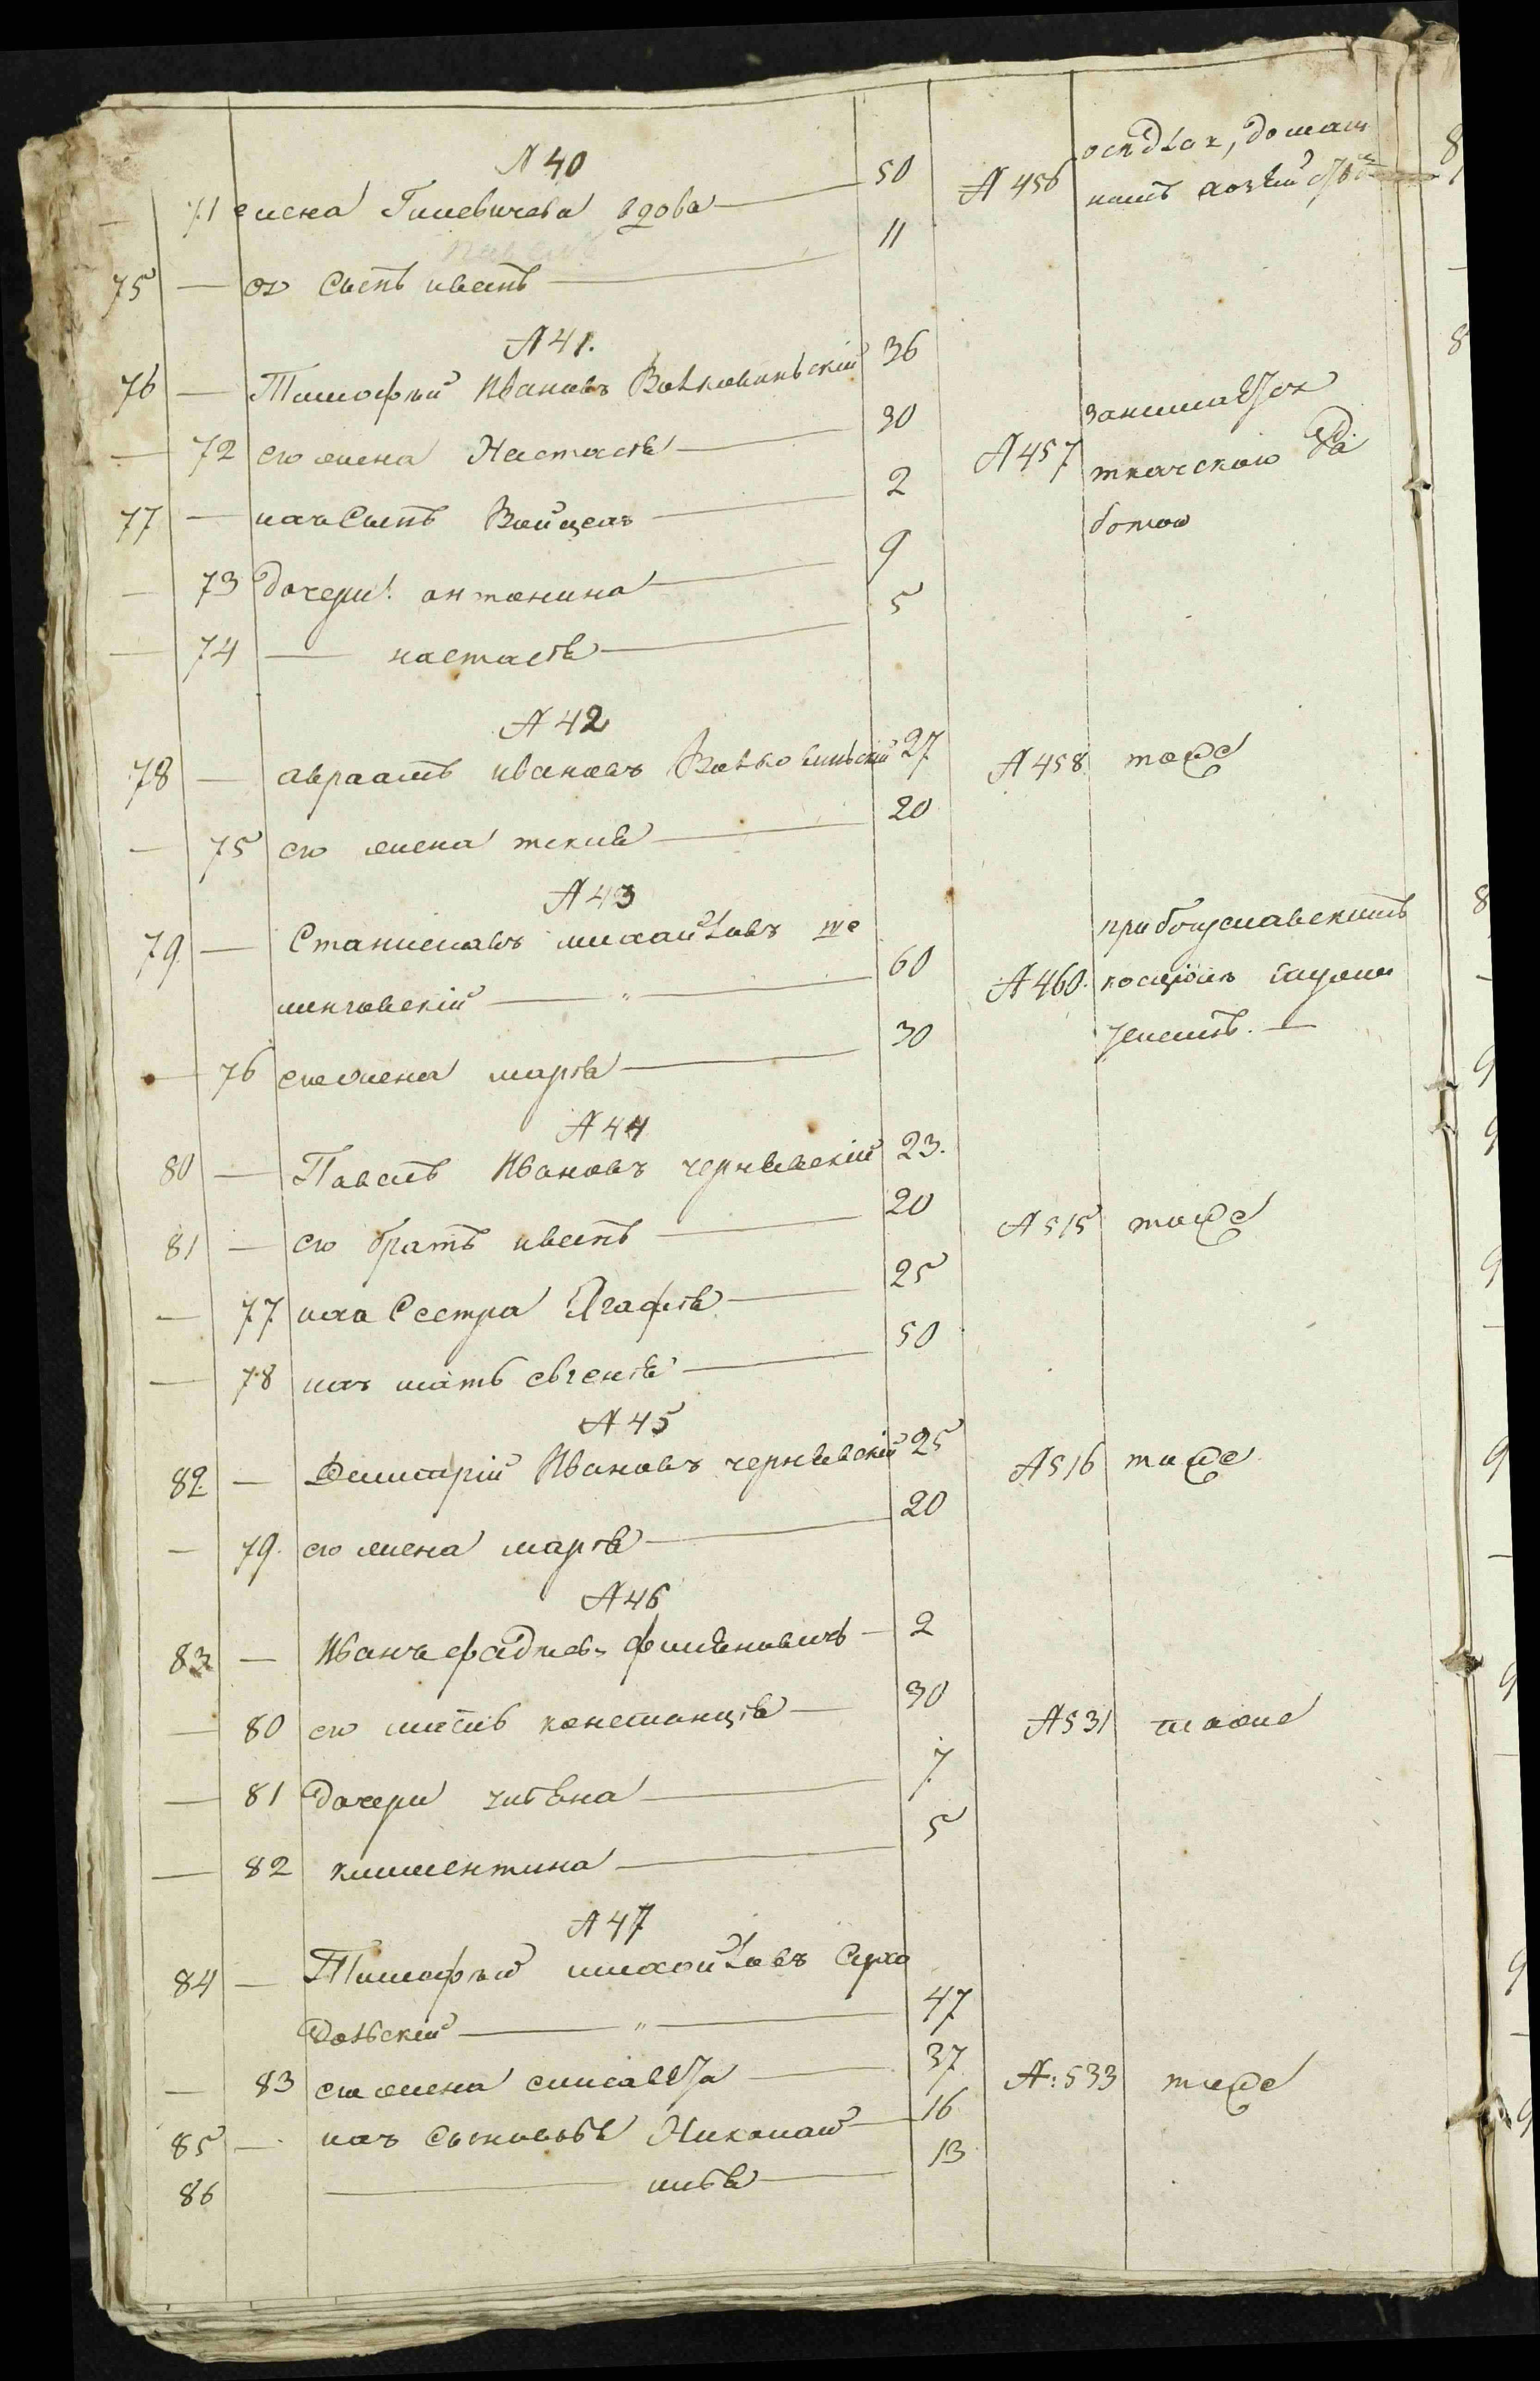 № 40
71 елена Гилевичева вдова 50 № 456
75 — ея Сынъ иванъ 11
№ 41.
76 — Тимофѣй Ивановъ Волковинскій 36
— 72 его жена Настасія 30 № 457 занимается
ткачскою ра
77 — ихъ Сынъ Войцехъ 2 ботою
— 73 Дочери: антонина 9
— 74 — настасія 5
№ 42
78 — авраамъ ивановъ Волковинскій 27 № 458 тоже
— 75 его жена текля 20
№ 43
79. — Станиславъ михайловъ
60 № 460. при богуславскомъ
— 76 его жена марія 30
№ 44
80 — Павелъ Ивановъ чернѣвскій 23.
81 — его братъ иванъ 20 № 515 тоже
— 77 ихъ Сестра Агафія 25
— 78 ихъ мать евгенія 50
№ 45
82. — Димитрій Ивановъ чернѣвскій 25 № 516 тоже
— 79. его жена марія 20
№ 46
83 — Иванъ фадѣевъ 2
— 80 его мать констанція 30 № 531 тоже
— 81 Дочери 7
— 82 климентина 5
№ 47
84 — Тимофѣй михайловъ Сухо
дольскій — " — 47
— 83 его жена елисавета 37 №: 533 тоже
85 — ихъ сыновья Николай 16
86 — илья 13